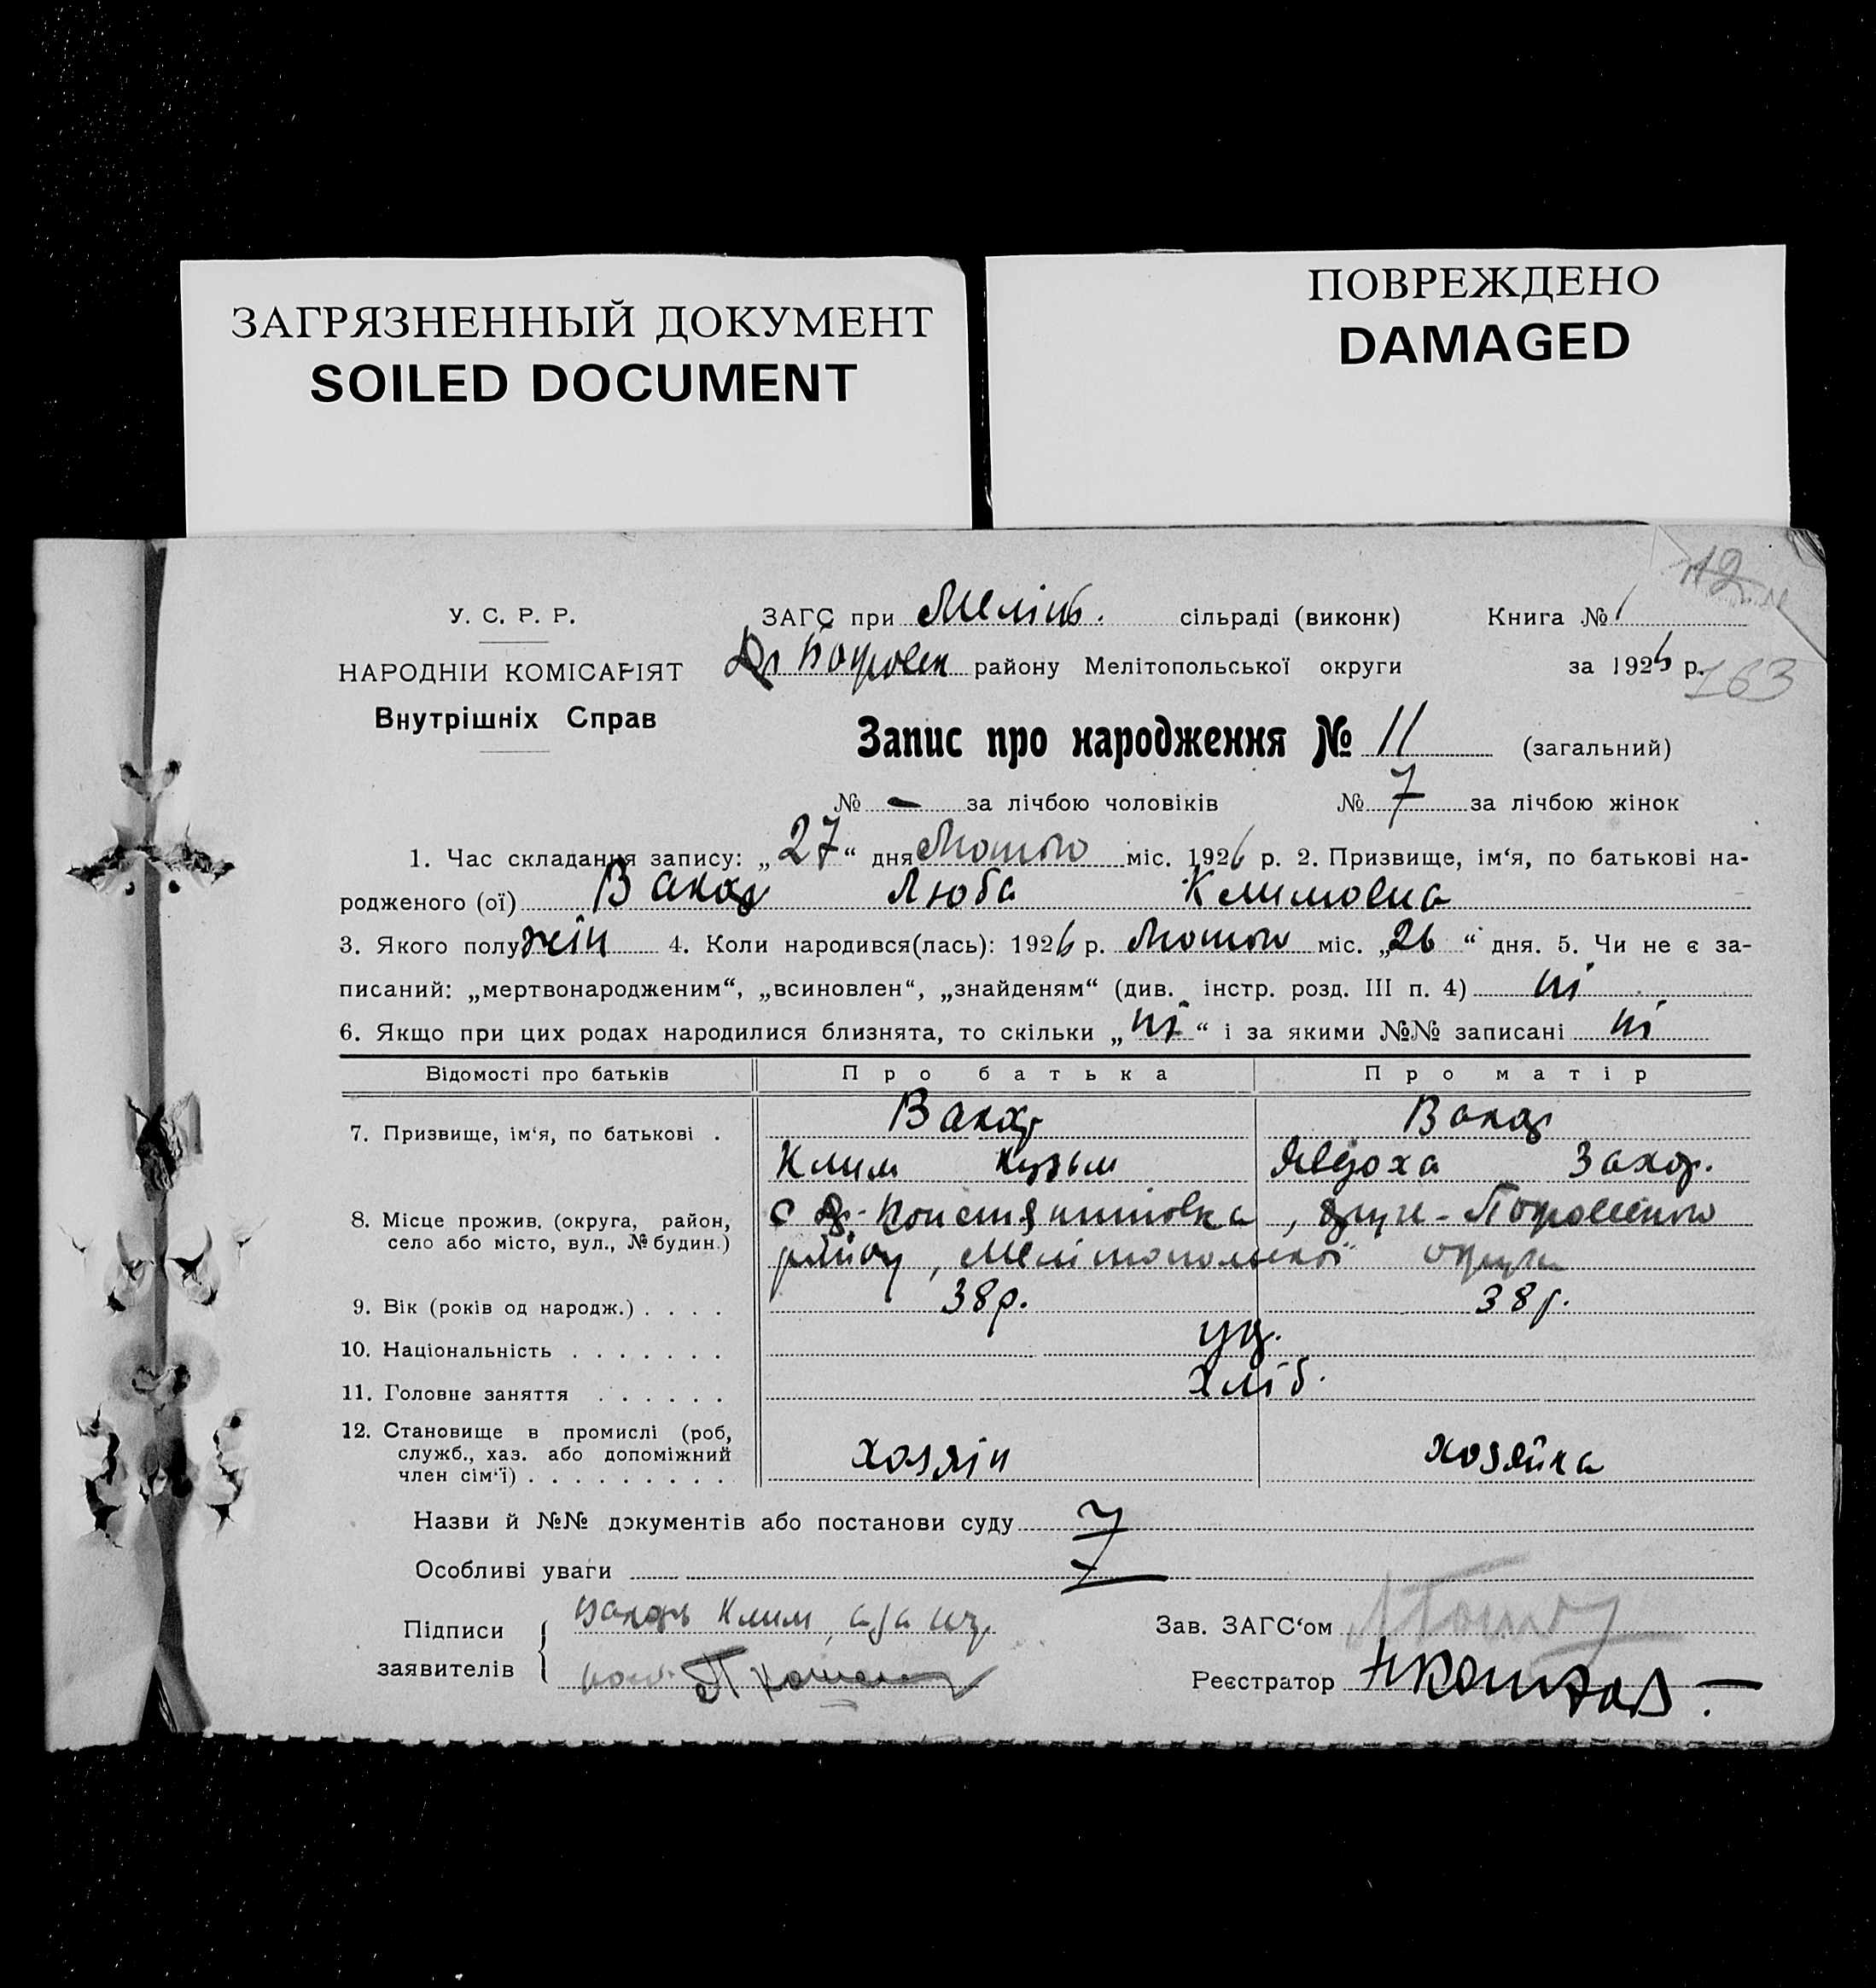 ЗАГРЯЗНЕННЫЙ ДОКУМЕНТ
SOILED DOCUMENT
ПОВРЕЖДЕНО
DAMAGED
163
У. С. Р. Р.
НАРОДНІЙ КОМІСАРІЯТ
Внутрішніх Справ
ЗАГС при сільраді (виконк) Книга № 1
району Мелітопольської округи за 1926 р.
Запис про народження № 11 (загальний)
№ - за лічбою чоловіків № 7 за лічбою жінок
1. Час складання запису: „27“ дня Лютого міс. 1926 р. 2. Призвище, ім‘я, по батькові на-
родженого (ої) Вакар Люба Климовна
3. Якого полу жін 4. Коли народився(лась): 1926 р. Лютого міс. „26“ дня. 5. Чи не є за-
писаний: „мертвонародженим“, „всиновлен“, „знайденям“ (див. інстр. розд. III п. 4) ні
6. Якщо при цих родах народилися близнята, то скільки „ні“ і за якими №№ записані ні
Відомості про батьків Про батька Про матір
7. Призвище, ім‘я, по батькові . Вакар Вакар
Клим Кузьм Явдоха Захар.
8. Місце прожив. (округа, район, село або місто, вул., № будин.) с Константиновка
району, Мелітопольської округи
9. Вік (років од народж.) . . . . 38 р. 38 р.
10. Національність . . . . . . . укр.
11. Головне заняття . . . . . . хліб.
12. Становище в промислі (роб,
служб., хаз. або допоміжний
член сім‘ї) . . . . . . . . . хозяін хозяйка
Назви й №№ документів або постанови суду
Особливі уваги
Підписи
заявителів
Вакарь Клим
Зав. ЗАГС‘ом
Реєстратор